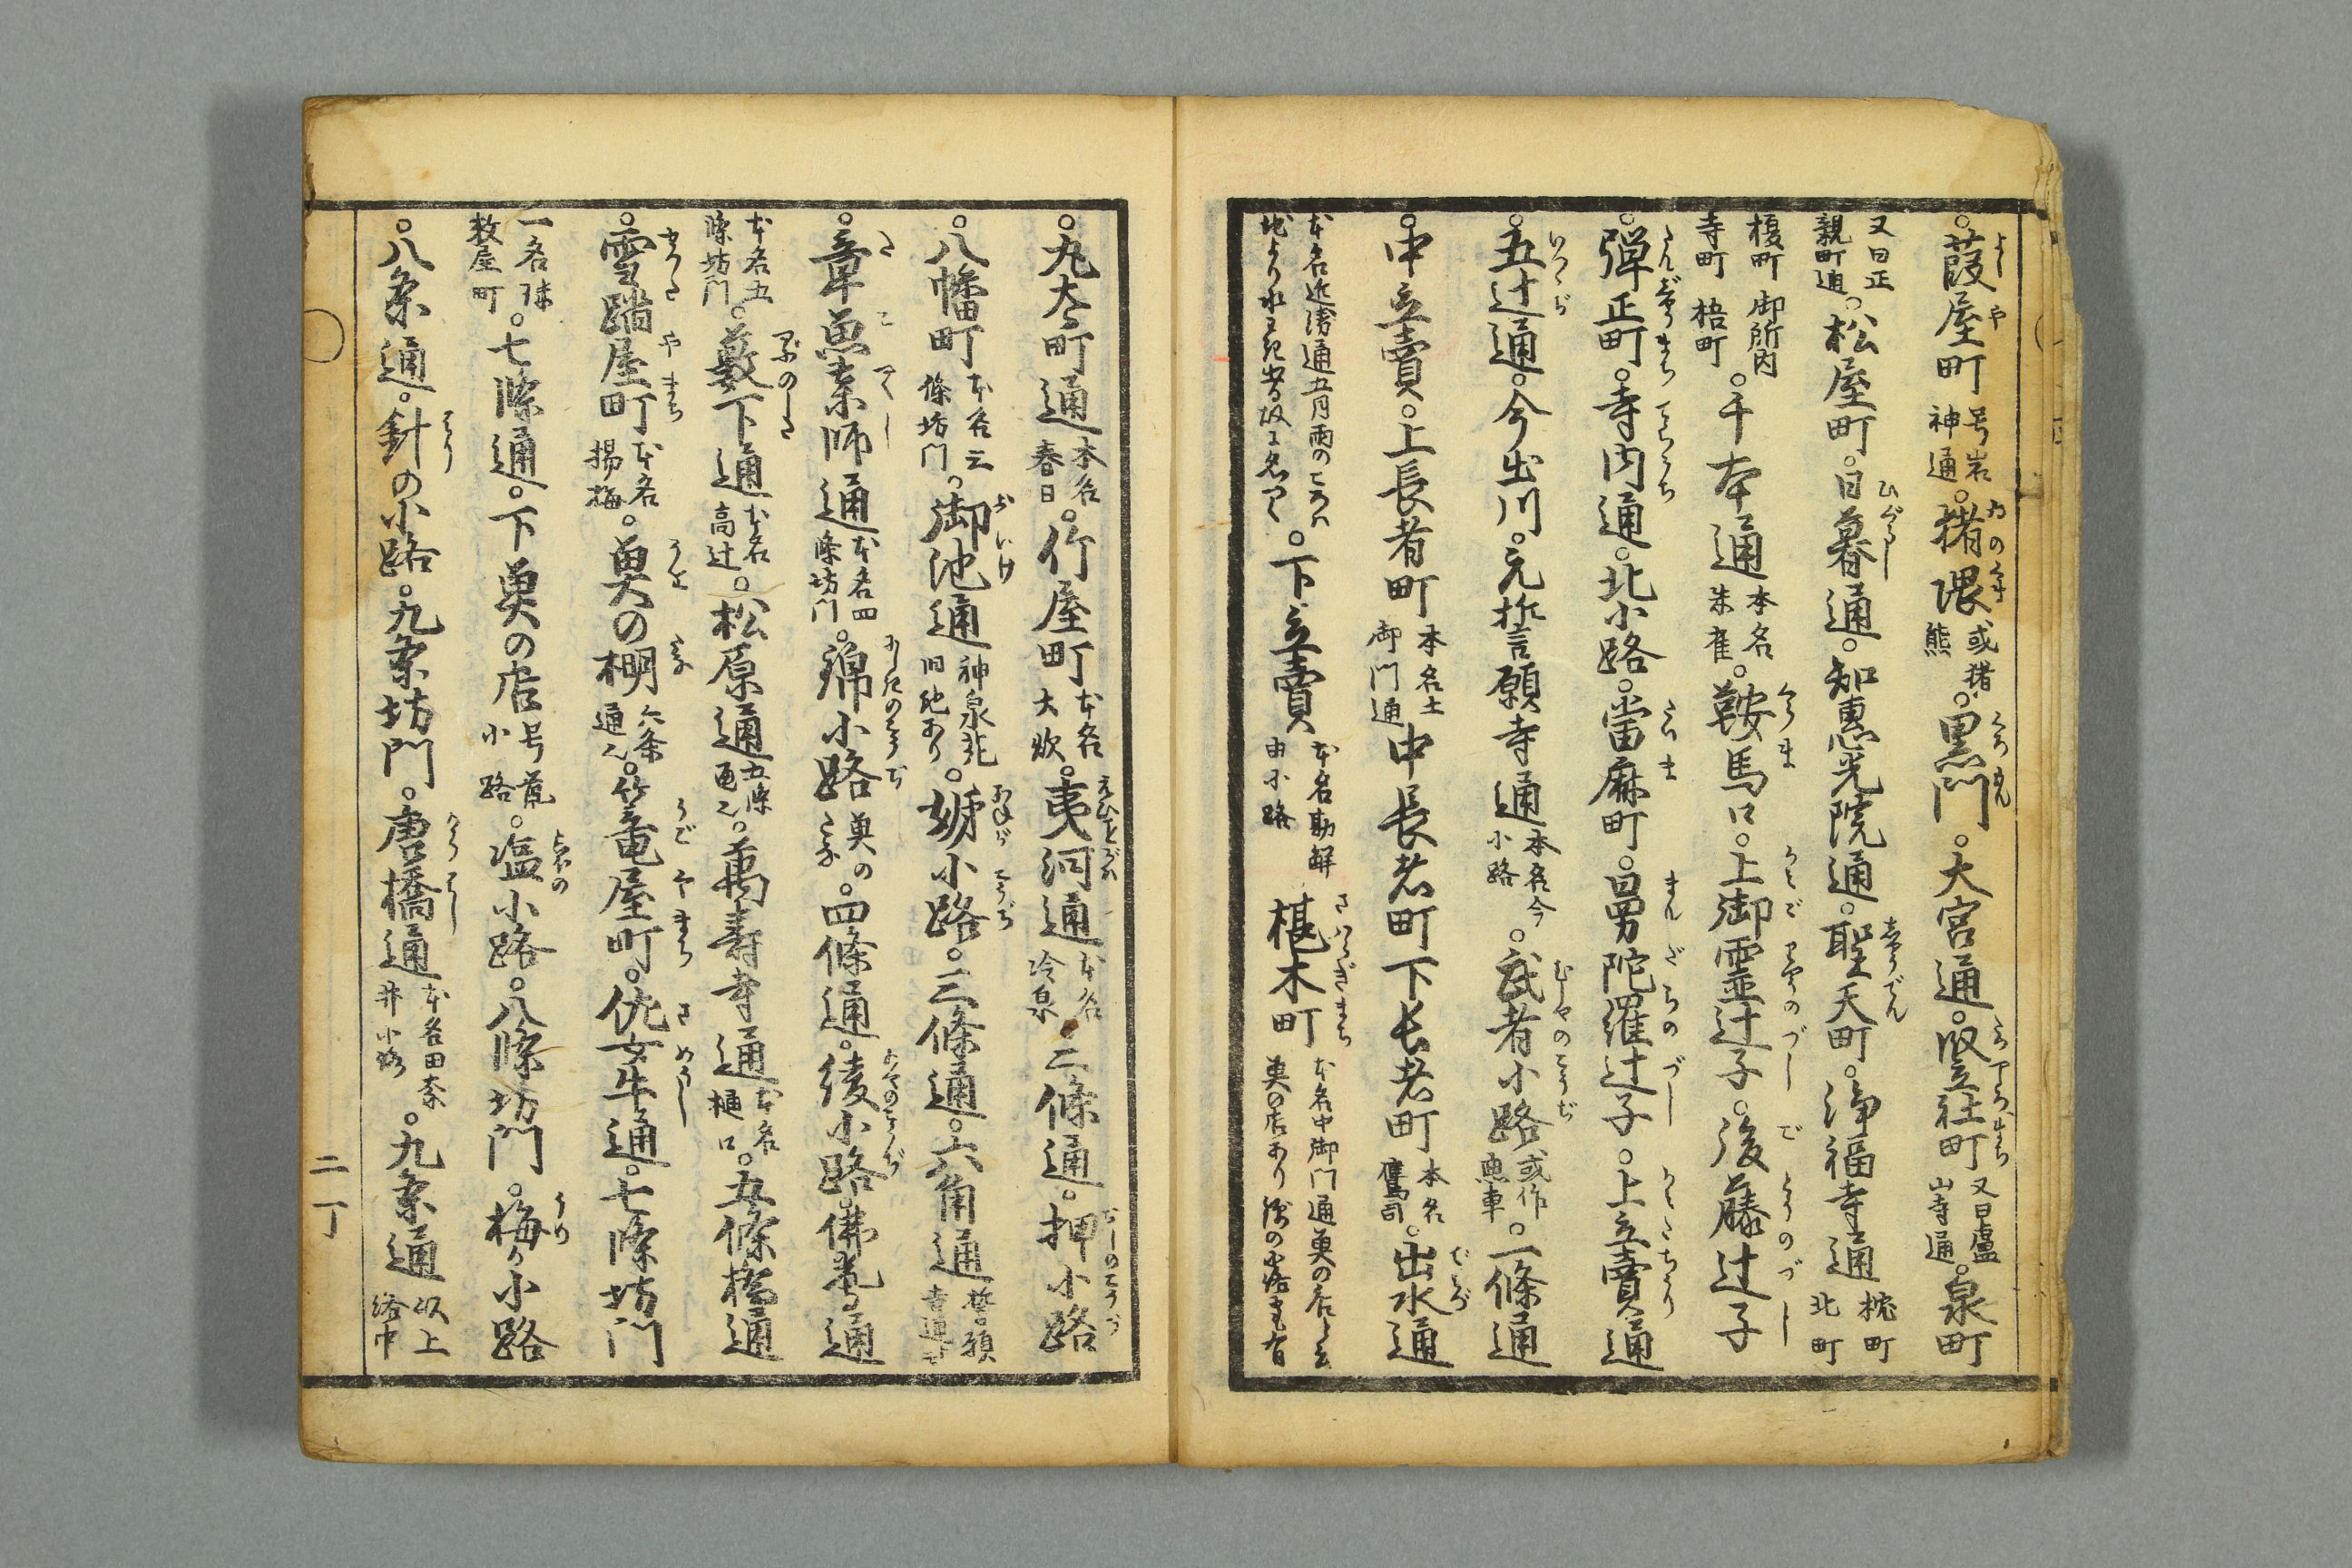 。葭屋町 号岩神通 。猪隈 或猪熊 。黒門。大宮通。竪社町 又曰盧山寺通 。泉町
又曰正親町通 。松屋町。日暮通。知恵光院通。聖天町。浄福寺通 枕町 北町
榎町 御所内 寺町 梧町 。千本通 本名朱雀 。鞍馬口。上御霊辻子。後藤辻子
。弾正町。寺内通。北小路。當麻町。曼陀羅辻子。上立賣通
。五辻通。今出川。元誓願寺通 本名今小路 。武者小路 或作魚車 。一條通
。中立賣。上長者町 本名土御門通 中長者町下長者町 本名鷹司 。出水通
本名近衛通五月雨のころハ地より水 。下立賣 本名勘解由小路 椹木町 本名中御門通奥の店と云
。九太町通 本名春日 。竹屋町 本名大炊 。夷河通 本名冷泉 。二條通。押小路
。八幡町 本名三條坊門 。御池通 神泉苑旧地あり 。姉小路。三條通。六角通 誓願寺通
。章魚薬師通 本名四條坊門 。錦小路 魚のたな 。四條通。綾小路。佛光寺通
本名五條坊門 。藪下通 本名高辻 。松原通 五條通 。萬壽寺通 本名樋口 。五條橋通
。雪踏屋町 本名揚梅 。魚の棚 六条通 。竹竜屋町。佐女牛通。七條坊門
一名珠数屋町 。七條通。下魚の店 号荒小路 。塩小路。八條坊門。梅ヶ小路
。八条通。針の小路。九条坊門。唐橋通 本名田 井小路 。九条通 以上洛中
二丁